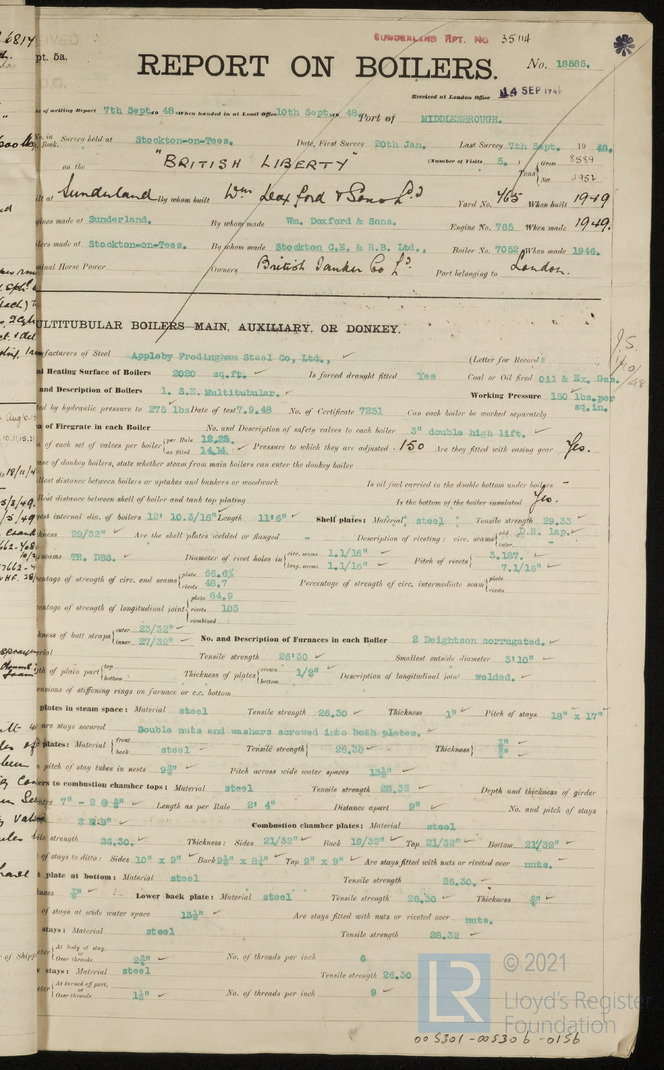 SUNDERLAND RPT. No 35114
pt. 5a.
REPORT ON BOILERS.
No. 18585.
Received at London Office 14 SEP 1948
of writing Report 7th Sept. 48. When handed in at Local Office 10th Sept. 48. Port of MIDDLESBROUGH.
No. in Survey held at Stockton-on-Tees. Date, First Survey 20th Jan. Last Survey 7th Sept. 19 48.
Book.
on the "BRITISH LIBERTY" (Number of Visits 5.) Tons Gross 8589
Net
at Sunderland By whom built Wm Doxford & Sons Ld Yard No. 765 When built 1949
made at Sunderland. By whom made Wm. Doxford & Sons. Engine No. 765 When made 1949.
made at Stockton-on-Tees. By whom made Stockton C.E. & R.B. Ltd., Boiler No. 7052 When made 1946.
Horse Power Owners British Tanker Co Ld. Port belonging to London.
MULTITUBULAR BOILERS MAIN, AUXILIARY, OR DONKEY.
facturers of Steel Appleby Frodingham Steel Co, Ltd., (Letter for Record
Heating Surface of Boilers 2020 sq.ft. Is forced draught fitted Yes Coal or Oil fired Oil & Ex. Gas.
and Description of Boilers 1. S.E. Multitubular. Working Pressure 150 lbs.per sq.in.
ed by hydraulic pressure to 275 lbs Date of test 7.9.48 No. of Certificate 7251 Can each boiler be worked separately
of Firegrate in each Boiler No. and Description of safety valves to each boiler 3" double high lift.
of each set of valves per boiler per Rule 12.25 as fitted 14.14 Pressure to which they are adjusted 150 Are they fitted with easing gear Yes.
se of donkey boilers, state whether steam from main boilers can enter the donkey boiler
llest distance between boilers or uptakes and bunkers or woodwork Is oil fuel carried in the double bottom under boilers
llest distance between shell of boiler and tank top plating Is the bottom of the boiler insulated Yes.
internal dia. of boilers 12' 10.3/16" Length 11'6" Shell plates: Material steel Tensile strength 29.33
29/32" Are the shell plates welded or flanged - Description of riveting: circ. seams end D.R. lap. inter.
seams TR. DBS. Diameter of rivet holes in circ. seams 1.1/16" long. seams 1.1/16" Pitch of rivets 3.187. 7.1/16"
centage of strength of circ. end seams plate 66.6% rivets 48.7 Percentage of strength of circ. intermediate seam plate rivets
centage of strength of longitudinal joint plate 84.9 rivets 103 combined
kness of butt straps outer 23/32" inner 27/32" No. and Description of Furnaces in each Boiler 2 Deightson corrugated.
Tensile strength 26:30 Smallest outside diameter 3'10"
th of plain part top bottom Thickness of plates crown bottom 1/2" Description of longitudinal joint welded.
ensions of stiffening rings on furnace or c.c. bottom
plates in steam space: Material steel Tensile strength 26.30 Thickness 1" Pitch of stays 18" x 17"
are stays secured Double nuts and washers screwed into both plates.
plates: Material front back steel Tensile strength 26.30 Thickness
pitch of stay tubes in nests Pitch across wide water spaces 13½"
ers to combustion chamber tops: Material steel Tensile strength 28.32 Depth and thickness of girder
7" - 2 @ Length as per Rule 2' 4" Distance apart 9" No. and pitch of stays
Combustion chamber plates: Material steel
strength 26.30. Thickness: Sides 21/32" Back 19/32" Top 21/32" Bottom 21/32"
of stays to ditto: Sides 10" x 9" Back Top 9" x 9" Are stays fitted with nuts or riveted over nuts.
plate at bottom: Material steel Tensile strength 26.30.
Lower back plate: Material steel Tensile strength 26.30 Thickness
of stays at wide water space 13½" Are stays fitted with nuts or riveted over nuts.
stays: Material steel Tensile strength 28.32
At body of stay, Over threads No. of threads per inch 6
stays: Material steel Tensile strength 26.30
At turned off part, Over threads No. of threads per inch 9
© 2021
LR
Lloyd's Register
Foundation
005301-005306-0156